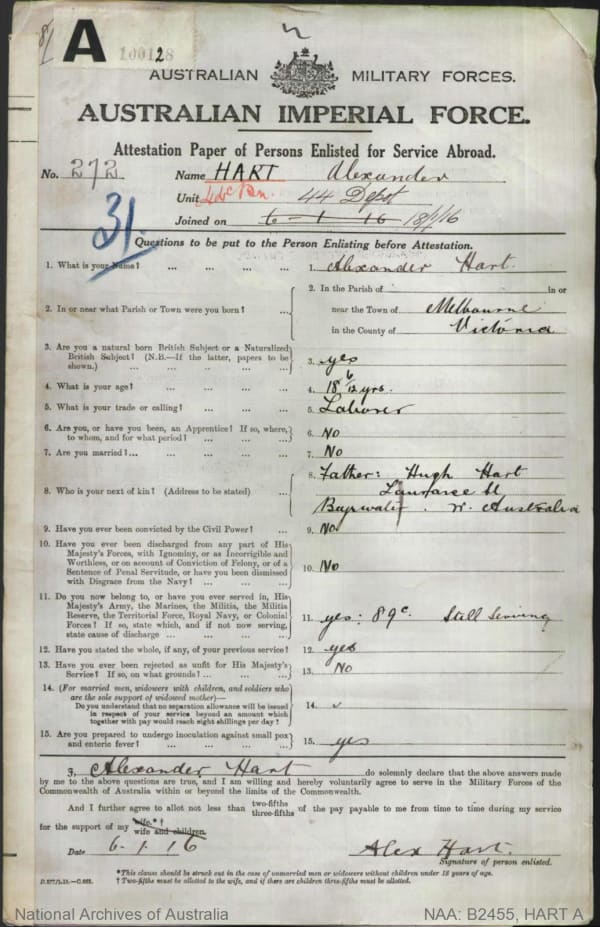 A
100128
AUSTRALIAN MILITARY FORCES.
AUSTRALIAN IMPERIAL FORCE.
Attestation Paper of Persons Enlisted for Service Abroad.
No. 272 Name HART Alexander
Unit 44th Bn. 44 Depot
Joined on 6-1-16 18/1/16
31
Questions to be put to the Person Enlisting before Attestation.
1. What is your Name? ... ... ... 1. Alexander Hart.
2. In or near what Parish or Town were you born? ... 2. In the Parish of in or
near the Town of Melbourne
in the County of Victoria
3. Are you a natural born British Subject or a Naturalized
British Subject? (N.B.—If the latter, papers to be
shown.) ... ... ... ... ... 3. yes
4. What is your age? ... ... ... 4. 18 6/12 yrs.
5. What is your trade or calling? ... ... ... 5. Laborer
6. Are you, or have you been, an Apprentice? If so, where,
to whom, and for what period? ... ... ... 6. No
7. Are you married? ... ... ... ... 7. No
8. Who is your next of kin? (Address to be stated) ... 8. Father: Hugh Hart
St
Bayswater. W. Australia
9. Have you ever been convicted by the Civil Power? ... 9. No.
10. Have you ever been discharged from any part of His
Majesty's Forces, with Ignominy, or as Incorrigible and
Worthless, or on account of Conviction of Felony, or of a
Sentence of Penal Servitude, or have you been dismissed
with Disgrace from the Navy? ... ... ... 10. No
11. Do you now belong to, or have you ever served in, His
Majesty's Army, the Marines, the Militia, the Militia
Reserve, the Territorial Force, Royal Navy, or Colonial
Forces? If so, state which, and if not now serving,
state cause of discharge ... ... ... 11. yes: 89c. Still Serving
12. Have you stated the whole, if any, of your previous service? 12. yes
13. Have you ever been rejected as unfit for His Majesty's
Service? If so, on what grounds? ... ... 13. No
14. (For married men, widowers with children, and soldiers who
are the sole support of widowed mother)—
Do you understand that no separation allowance will be issued
in respect of your service beyond an amount which
together with pay would reach eight shillings per day? 14.
15. Are you prepared to undergo inoculation against small pox
and enteric fever? ... ... ... ... 15. yes
I, Alexander Hart do solemnly declare that the above answers made
by me to the above questions are true, and I am willing and hereby voluntarily agree to serve in the Military Forces of the
Commonwealth of Australia within or beyond the limits of the Commonwealth.
And I further agree to allot not less than two-fifths three-fifths of the pay payable to me from time to time during my service
for the support of my wife.*† wife and children.
Date 6.1.16 Alex Hart.
Signature of person enlisted.
*This clause should be struck out in the case of unmarried men or widowers without children under 18 years of age.
† Two-fifths must be allotted to the wife, and if there are children three-fifths must be allotted.
National Archives of Australia NAA: B2455, HART A